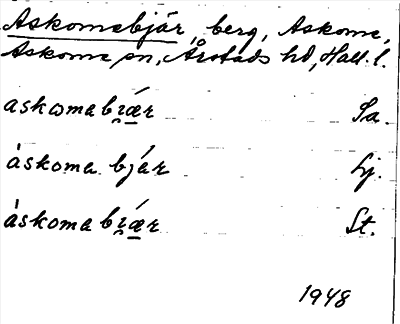 Askomebjär, berg, Askome,
Askome sn, Årstads hd, Hall. l.
askomabi̯ǽ̲r Sa.
àskoma bjár Lj.
àskomabi̯ǽ̲r St.
1948